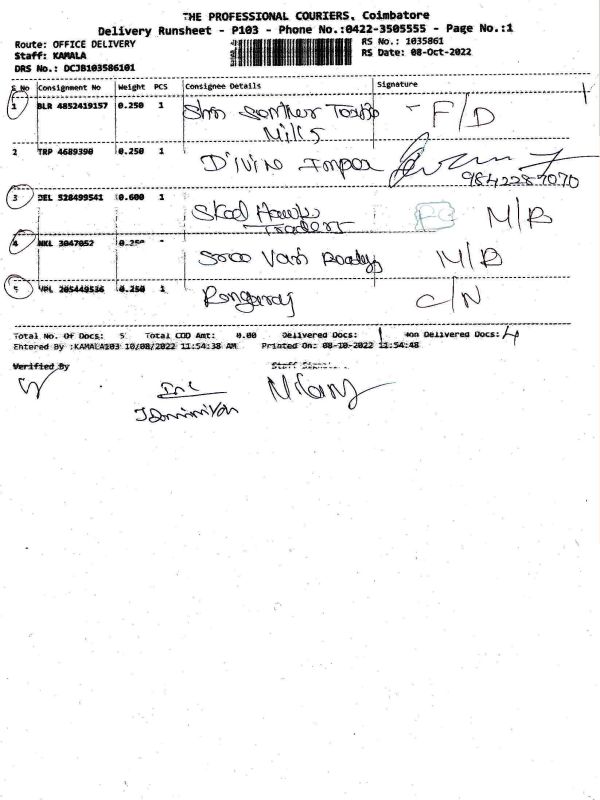 THE PROFESSIONAL COURIERS, Coimbatore
Delivery Runsheet - P103 - Phone No.:0422-3505555 - Page No.:1
Route: OFFICE DELIVERY RS No.: 1035861
Staff: KAMALA RS Date: 08-Oct-2022
DRS No.: DCJB103586101
S No Consignment No Weight PCS Consignee Details Signature
1 BLR 4852419157 0.250 1 Shri F/D
Mills
2 TRP 4689390 0.250 1 Divine Impex
9842287070
3 DEL 528499541 0.600 1 Hawk M/B
Traders
4 NKL 3047052 0.250 M/B
5 VPL 205449536 0.250 1 Rangaraj C/N
Total No. Of Docs: 5 Total COD Amt: 0.00 Delivered Docs: 1 Non Delivered Docs: 4
Entered By :KAMALA103 10/08/2022 11:54:38 AM Printed On: 08-10-2022 11:54:48
Verified By